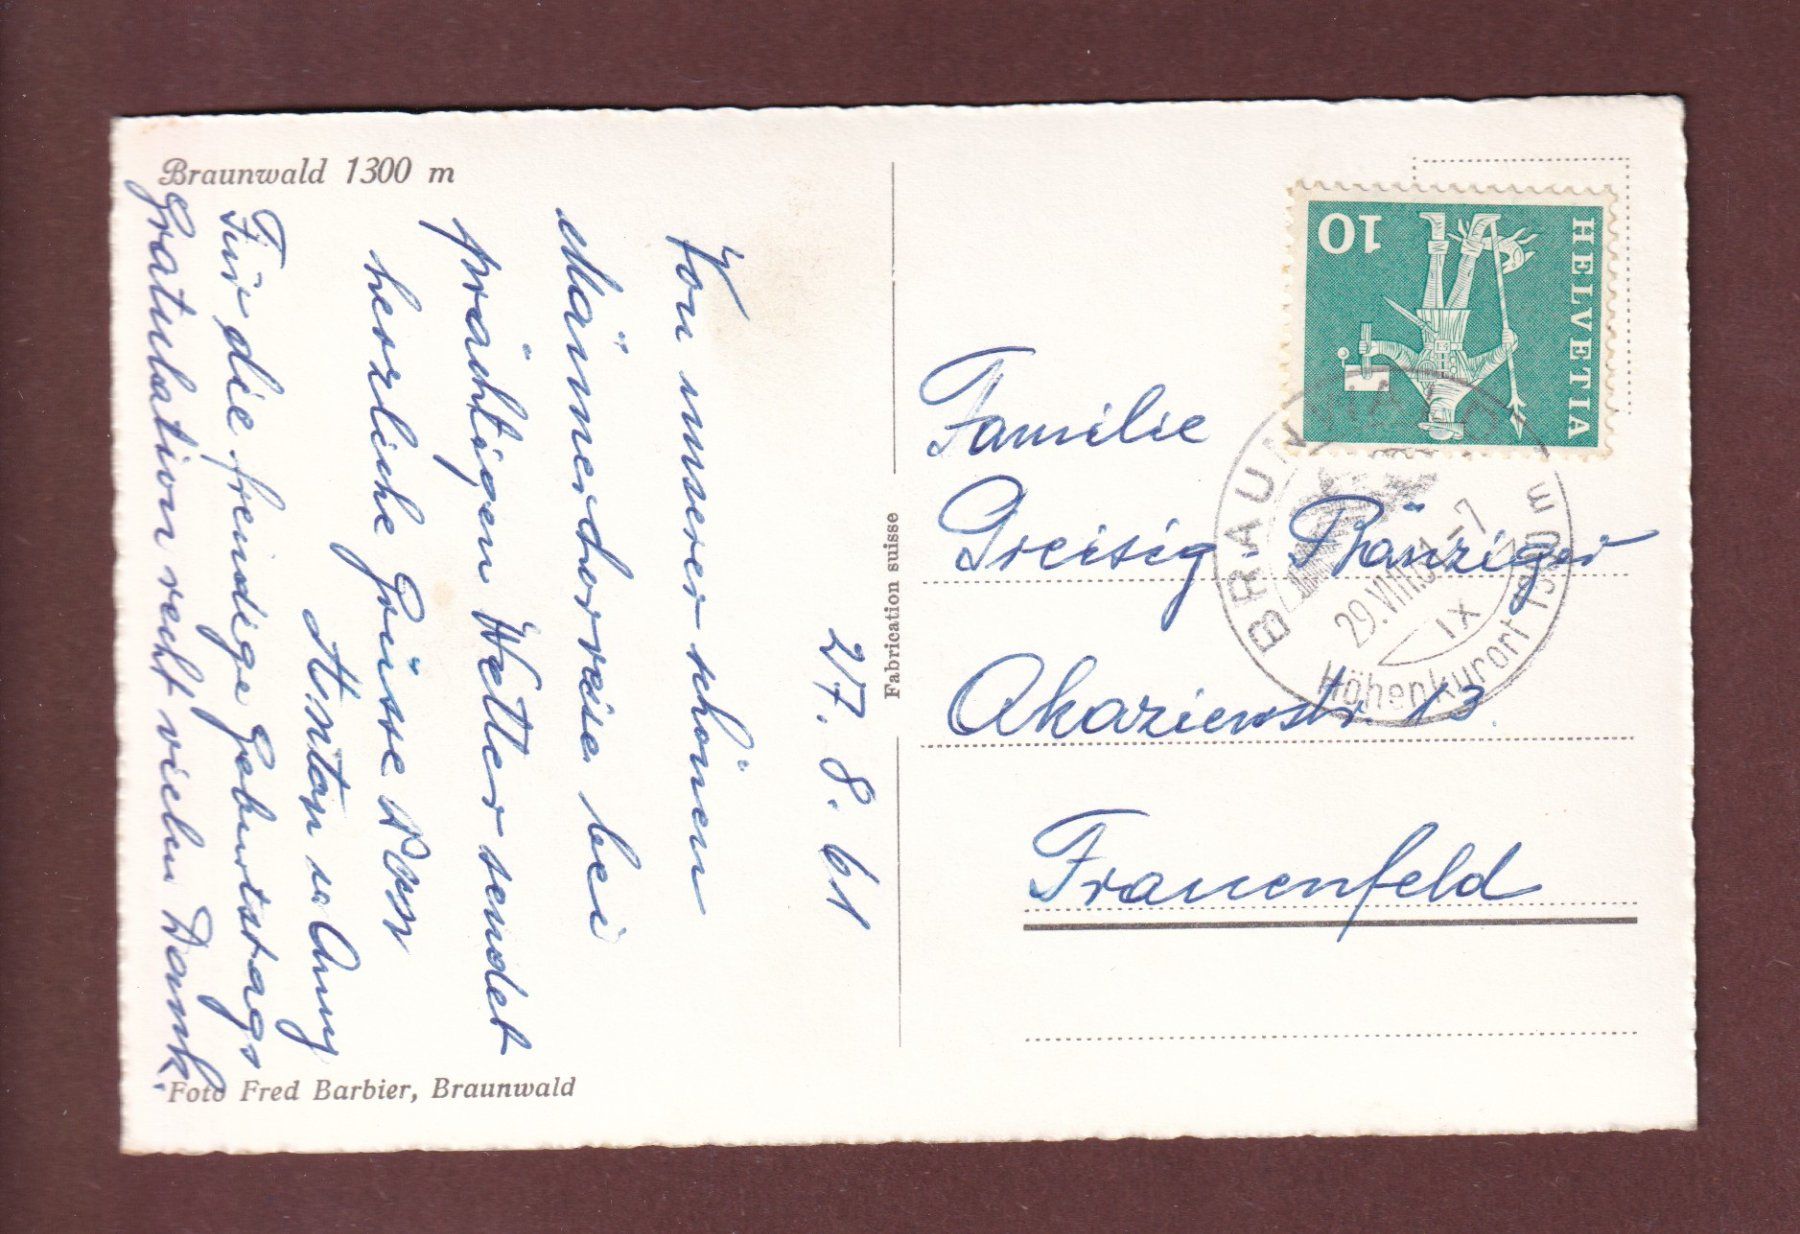 Braunwald 1300 m
27. 8. 61
Von unserer schönen
Männerchorreise bei
prächtigen Wetter sendet
herzliche Grüsse
Anton
Für die freudige Geburtstags
Gratulation recht vielen Dank.
Foto Fred Barbier, Braunwald
Fabrication suisse
HELVETIA
10
BRAUNWALD
29.VIII.61-7
IX
Höhenkurort 1300 m
Familie
Greisig-Ränziger
Akazienstr. 13.
Frauenfeld